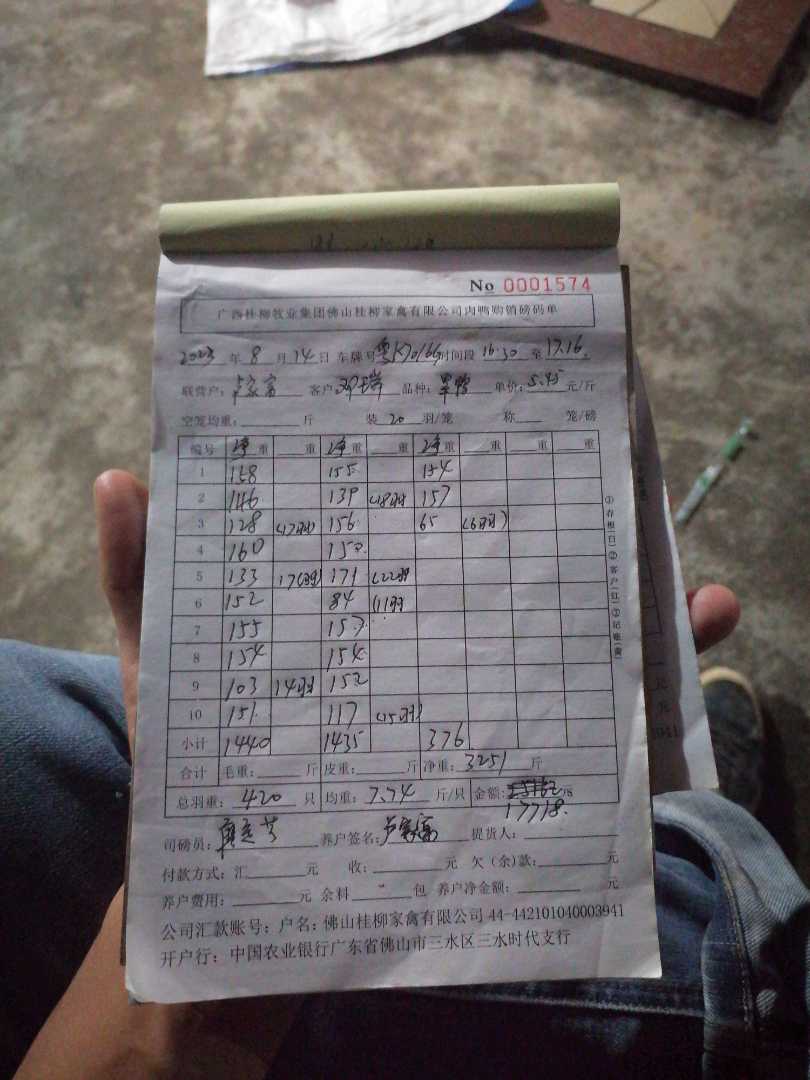 No 0001574
广西桂柳牧业集团佛山桂柳家禽有限公司肉鸭购销磅码单
2023 年 8 月 14 日 车牌号 时间段 16:30 至 17:16
联营户: 卢家富 客户: 邓瑞 品种: 单价: 5.45 元/斤
空笼均重: 斤 装 20 羽/笼 称 笼/磅
编号 净重 重 净重 重 净重 重 重 重
1 158 155 154
2 146 139 (18羽 157
3 128 (17羽) 156 65 (6羽)
4 160 152
5 133 17(羽) 171 (22羽
6 152 84 (11羽
7 155 157
8 154 154
9 103 14羽 152
10 151 117 (15羽)
小计 1440 1435 376
合计 毛重: 斤 皮重: 斤 净重: 3251 斤
总羽重: 420 只 均重: 7.74 斤/只 金额:
17718.
司磅员: 养户签名: 卢家富 提货人:
付款方式: 汇 元 收: 元 欠(余)款: 元
养户费用: 元 余料 包 养户净金额: 元
公司汇款账号: 户名: 佛山桂柳家禽有限公司 44-442101040003941
开户行: 中国农业银行广东省佛山市三水区三水时代支行
①存根(白)②客户(红)③记账(黄)